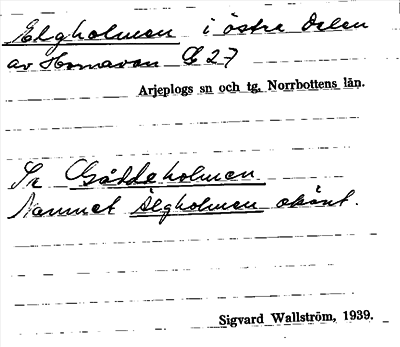 Elgholmen i östra delen
av Hornavan E 27
Arjeplogs sn och tg. Norrbottens län.
Är Gäddeholmen
Namnet Älgholmen okänt.
Sigvard Wallström, 1939.